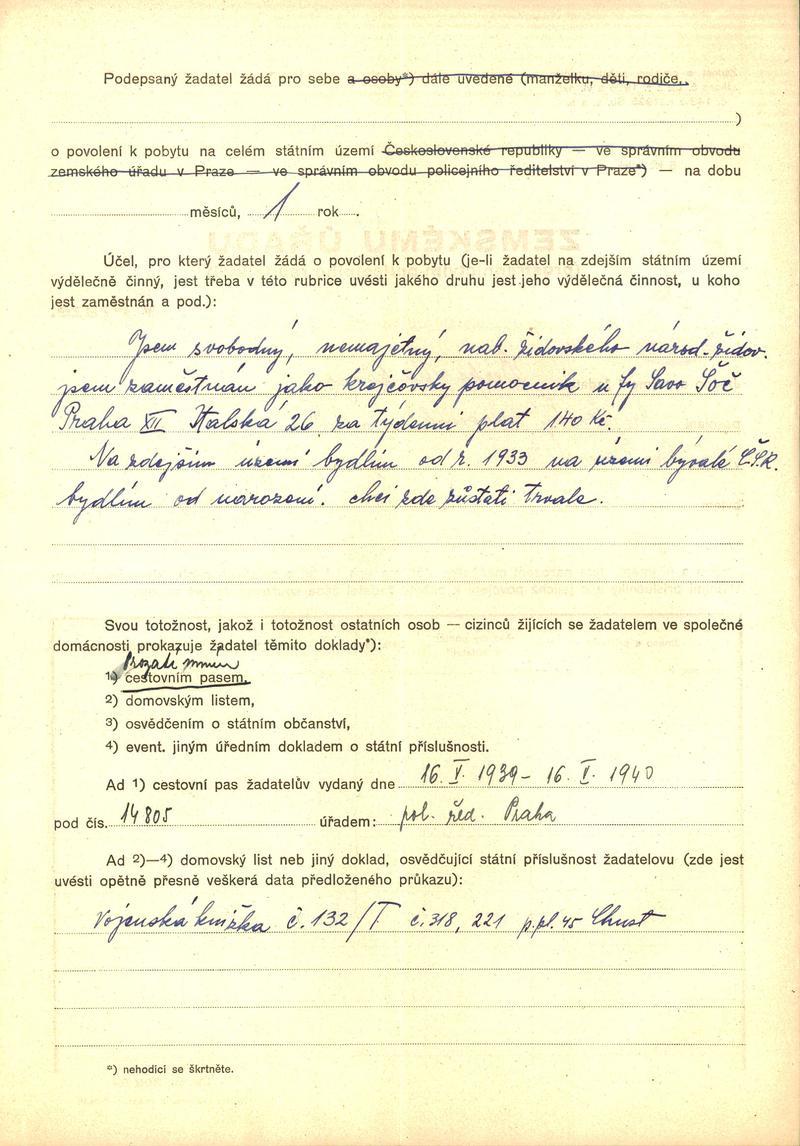 Podepsaný žadatel žádá pro sebe a osoby*) dále uvedené (manželku, děti, rodiče..
)
o povolení k pobytu na celém státním území Československé republiky — ve správním obvodu
zemského úřadu v Praze — ve správním obvodu policejního ředitelství v Praze*) — na dobu
měsíců, 1 rok
Účel, pro který žadatel žádá o povolení k pobytu (je-li žadatel na zdejším státním území
výdělečně činný, jest třeba v této rubrice uvésti jakého druhu jest jeho výdělečná činnost, u koho
jest zaměstnán a pod.):
Jsem svobodný, nemajetný, nab. židovského národ. židov.
jsem zaměstnán jako krejčovsky pomocnik u fy Savo Šoč
Praha XII Italská 26 za týdenni plat 140 Kč.
Na zdejším území bydlím od r. 1933 na území bývalé ČSR.
bydlím od narození. chci zde zůstati trvale.
Svou totožnost, jakož i totožnost ostatních osob — cizinců žijících se žadatelem ve společné
domácnosti prokazuje žadatel těmito doklady*):
Prozatimnim
1) cestovním pasem,
2) domovským listem,
3) osvědčením o státním občanství,
4) event. jiným úředním dokladem o státní příslušnosti.
Ad 1) cestovní pas žadatelův vydaný dne 16. V. 1939 - 16. I. 1940
pod čís. 14805 úřadem: pol. řed. Praha
Ad 2)—4) domovský list neb jiný doklad, osvědčující státní příslušnost žadatelovu (zde jest
uvésti opětně přesně veškerá data předloženého průkazu):
Vojenská knižka č. 132/T č. 318, 221 p.pl. 45 Chust
*) nehodící se škrtněte.